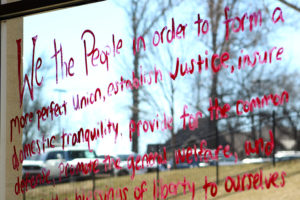 We the People in order to form a
more perfect Union, establish Justice, insure
domestic tranquility, provide for the common
defense, promote the general welfare, and
blessings of liberty to ourselves